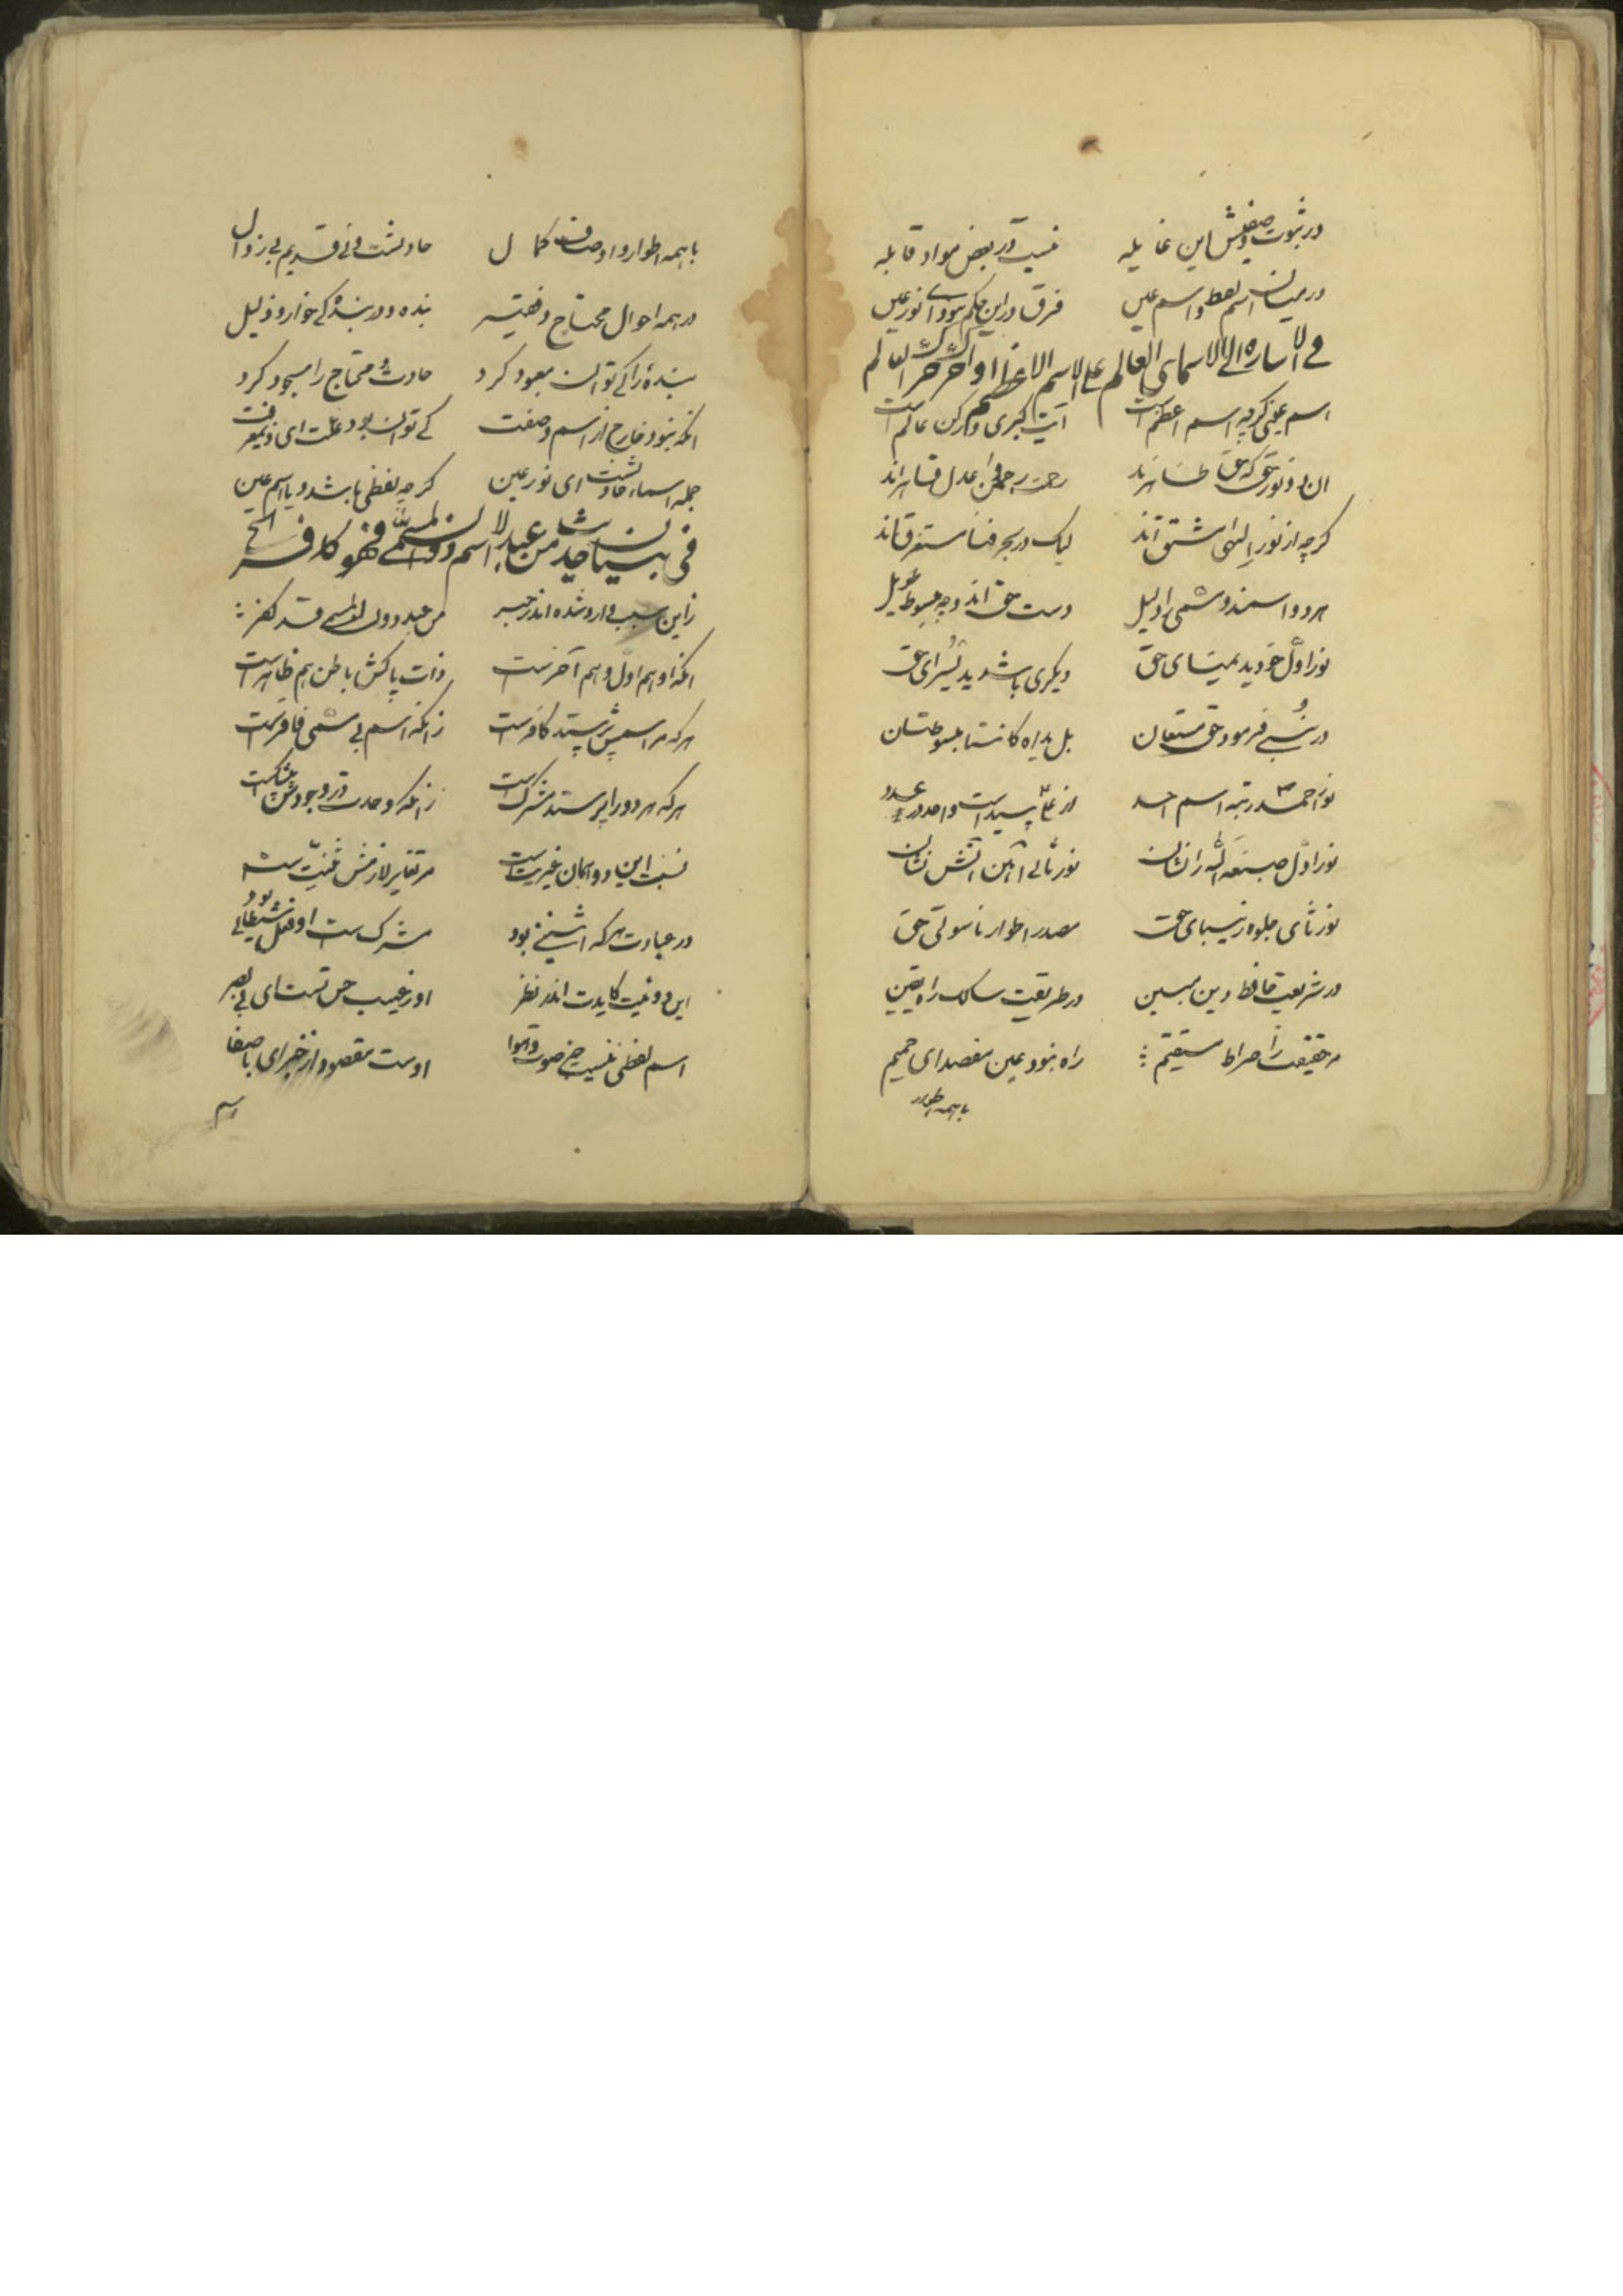 در ثبوت وصفیش این غایله نیست در بعض مواد قابله
در میان اسم لفظ و اسم عین فرق در این حکم نبود ای نور عین
فی الاشاره الی الاسمای العالم علی الاسم الاعظم
اسم عینی گرچه اسم اعظم است آیت کبری و رکن عالم است
ان دو نور حق که حق ظاهرند
گرچه از نور الهی مشتق‌اند لیک در بحر فنا مستغرق‌اند
هر دو اسمند و مسمی را دلیل دست حق اند و چه مبسوط طویل
نور اول خود ید یمنای حق دیگری باشد ید یسرای حق
در نبی فرمود حق مستعان بل یداه کانتا مبسوطتان
نور احمد رتبه اسم احد از علی پیداست واحد در عدد
نور اول صبغة الله را نشان نور ثانی آهن آتش نشان
نور ثانی جلوه زیبای حق مصدر اطوار ناسوتی حق
در شریعت حافظ دین مبین در طریقت سالک راه یقین
در حقیقت را صراط مستقیم راه نبود عین مقصد ای حمیم
با همه اطوار
با همه اطوار و اوصاف کمال حادثست نی قدیم بی زوال
در همه احوال محتاج و فقیر بنده و در بندگی خوار و ذلیل
بنده را کی توان معبود کرد حادث محتاج را مسجود کرد
انکه نبود خارج از اسم و صفت کی توان بود علت ای ذیمعرفت
جمله اسماء حادثست ای نور عین گرچه لفظی باشد و یا اسم عین
فی بیان حدیث من عبد الاسم دون المسمی فهو کافر الخ
زاین سبب وارد شده اندر خبر من عبد دون المسمی قد کفر
انکه او هم اول و هم آخرست ذات پاکش باطن هم ظاهرست
هر که مر اسمش پرستد کافرست زانکه اسم بی مسمی
هر که هر دو را پرستد مشرکست زانکه وحدت در وجودش
نسبت این دو همان غیریت است مر تغایر لازمش
در عبادت هر که مشرکست او فعل شیطانی بود
این دوئیت کایدت اندر نظر او ز عیب حس تست ای بی بصر
اسم لفظی نیست جز صوت و هوا اوست مقصود از خبر ای با صفا
اسم